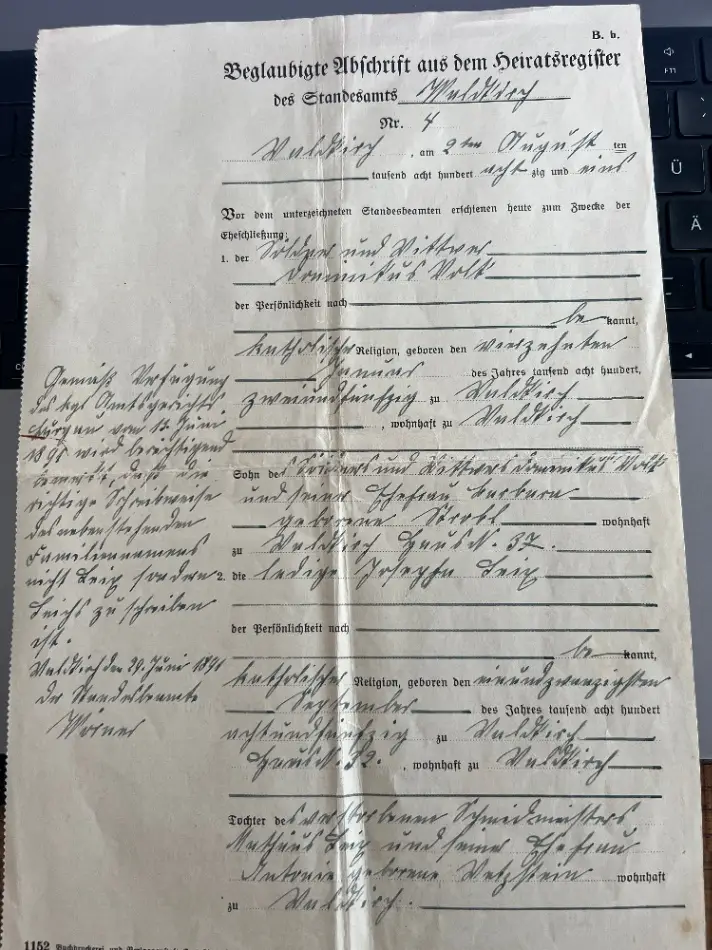 B. b.
Beglaubigte Abschrift aus dem Heiratsregister
des Standesamts Waldkirch
Nr. 4
Waldkirch, am 2ten August ten
tausend acht hundert achtzig und eins
Vor dem unterzeichneten Standesbeamten erschienen heute zum Zwecke der
Eheschließung:
1. der Söldner und Wittwer
Dominikus Volk
der Persönlichkeit nach
bekannt,
katholischer Religion, geboren den vierzehnten
Januar des Jahres tausend acht hundert,
zweiundfünfzig zu Waldkirch
, wohnhaft zu Waldkirch
Sohn des Söldners und Wittwers Dominikus Volk
und seiner Ehefrau Barbara
geborene Strobl wohnhaft
zu Waldkirch Haus N. 37.
2. die ledige Josepha Leix
der Persönlichkeit nach
bekannt,
katholischer Religion, geboren den einundzwanzigsten
September des Jahres tausend acht hundert
achtundfünfzig zu Waldkirch
Haus N. 32. , wohnhaft zu Waldkirch
Tochter des verstorbenen Schmidmeisters
Mathäus Leix und seiner Ehefrau
Antonie geborene Wetzstein wohnhaft
zu Waldkirch.
Gemäß Verfügung
des kgl. Amtsgerichts
Burgau vom 17. Juni
1891 wird berichtigend
bemerkt, daß die
richtige Schreibweise
des nebenstehenden
Familiennamens
nicht Leix sondern
Leichs zu schreiben
ist.
Waldkirch den 29. Juni 1891
Der Standesbeamte
1152 Buchdruckerei und
FT1
Ü
Ä